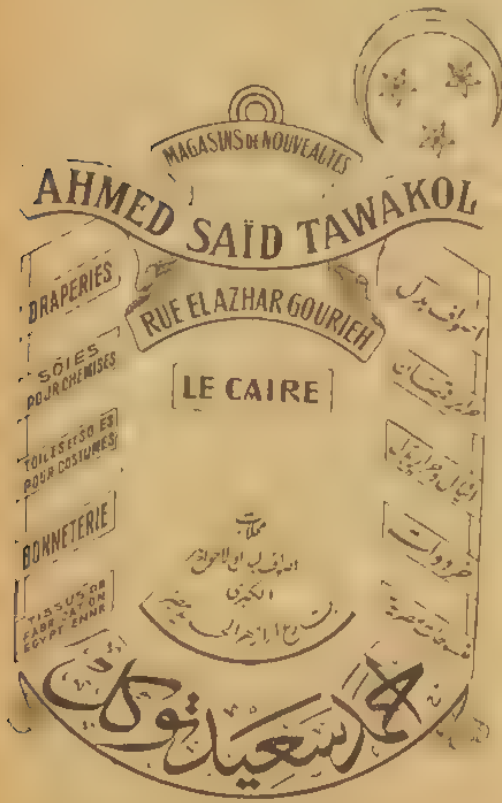 MAGASINS DE NOUVEAUTES
AHMED SAÏD TAWAKOL
RUE EL AZHAR GOURIEH
LE CAIRE
DRAPERIES
SOIES
POUR CHEMISES
TOILES ET SOIES
POUR COSTUMES
BONNETERIE
TISSUS DE
FABRICATION
EGYPTIENNE
اصواف بدل
حرير قمصان
خردوات
محلات
الكبرى
احمد سعيد توكل